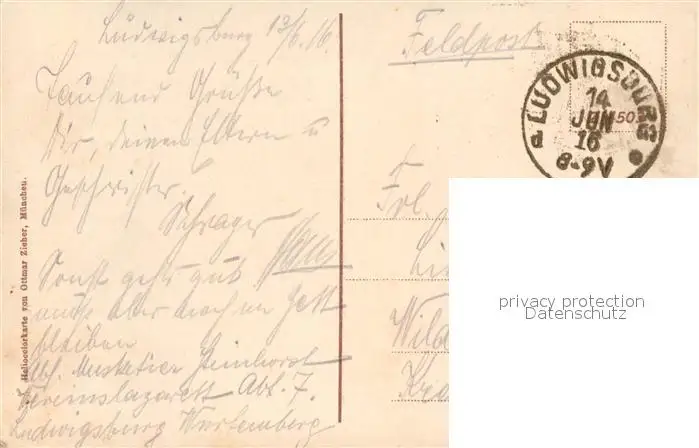 Ludwigsburg 13/6.16.
Tausend Grüße
Dir, deinen Eltern u
Geschwister.
Sonst gehts gut
muß aber noch im Bett
bleiben
Abs. Musketier Steinhorst
Vereinslazarett Abt. 7.
Ludwigsburg Würtemberg
Heliocolorkarte von Ottmar Zieher, München.
Feldpost
LUDWIGSBURG
14
JUN
16
8-9V
50
Frl.
Wild
privacy protection
Datenschutz